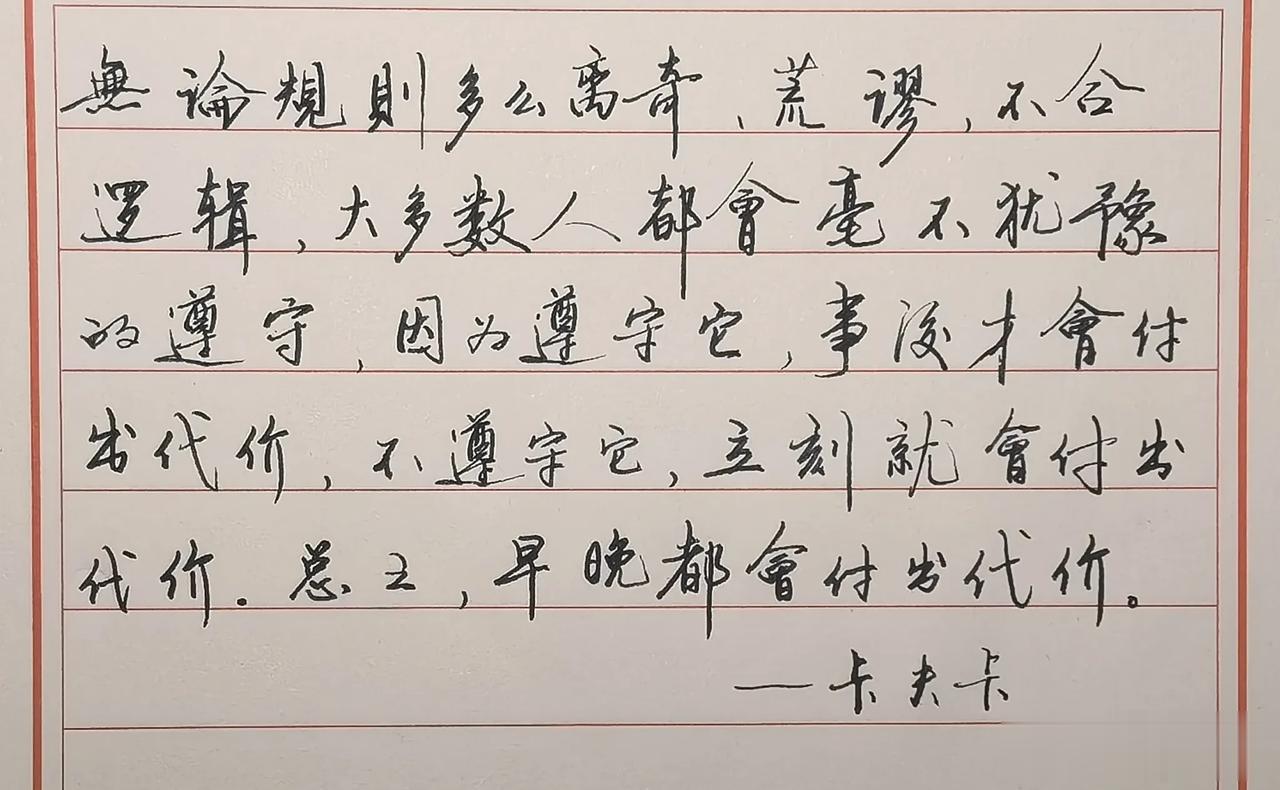 無論規則多么离奇,荒謬,不合
逻辑,大多数人都會毫不犹豫
的遵守,因为遵守它,事後才會付
出代价,不遵守它,立刻就會付出
代价.总之,早晚都會付出代价。
—卡夫卡